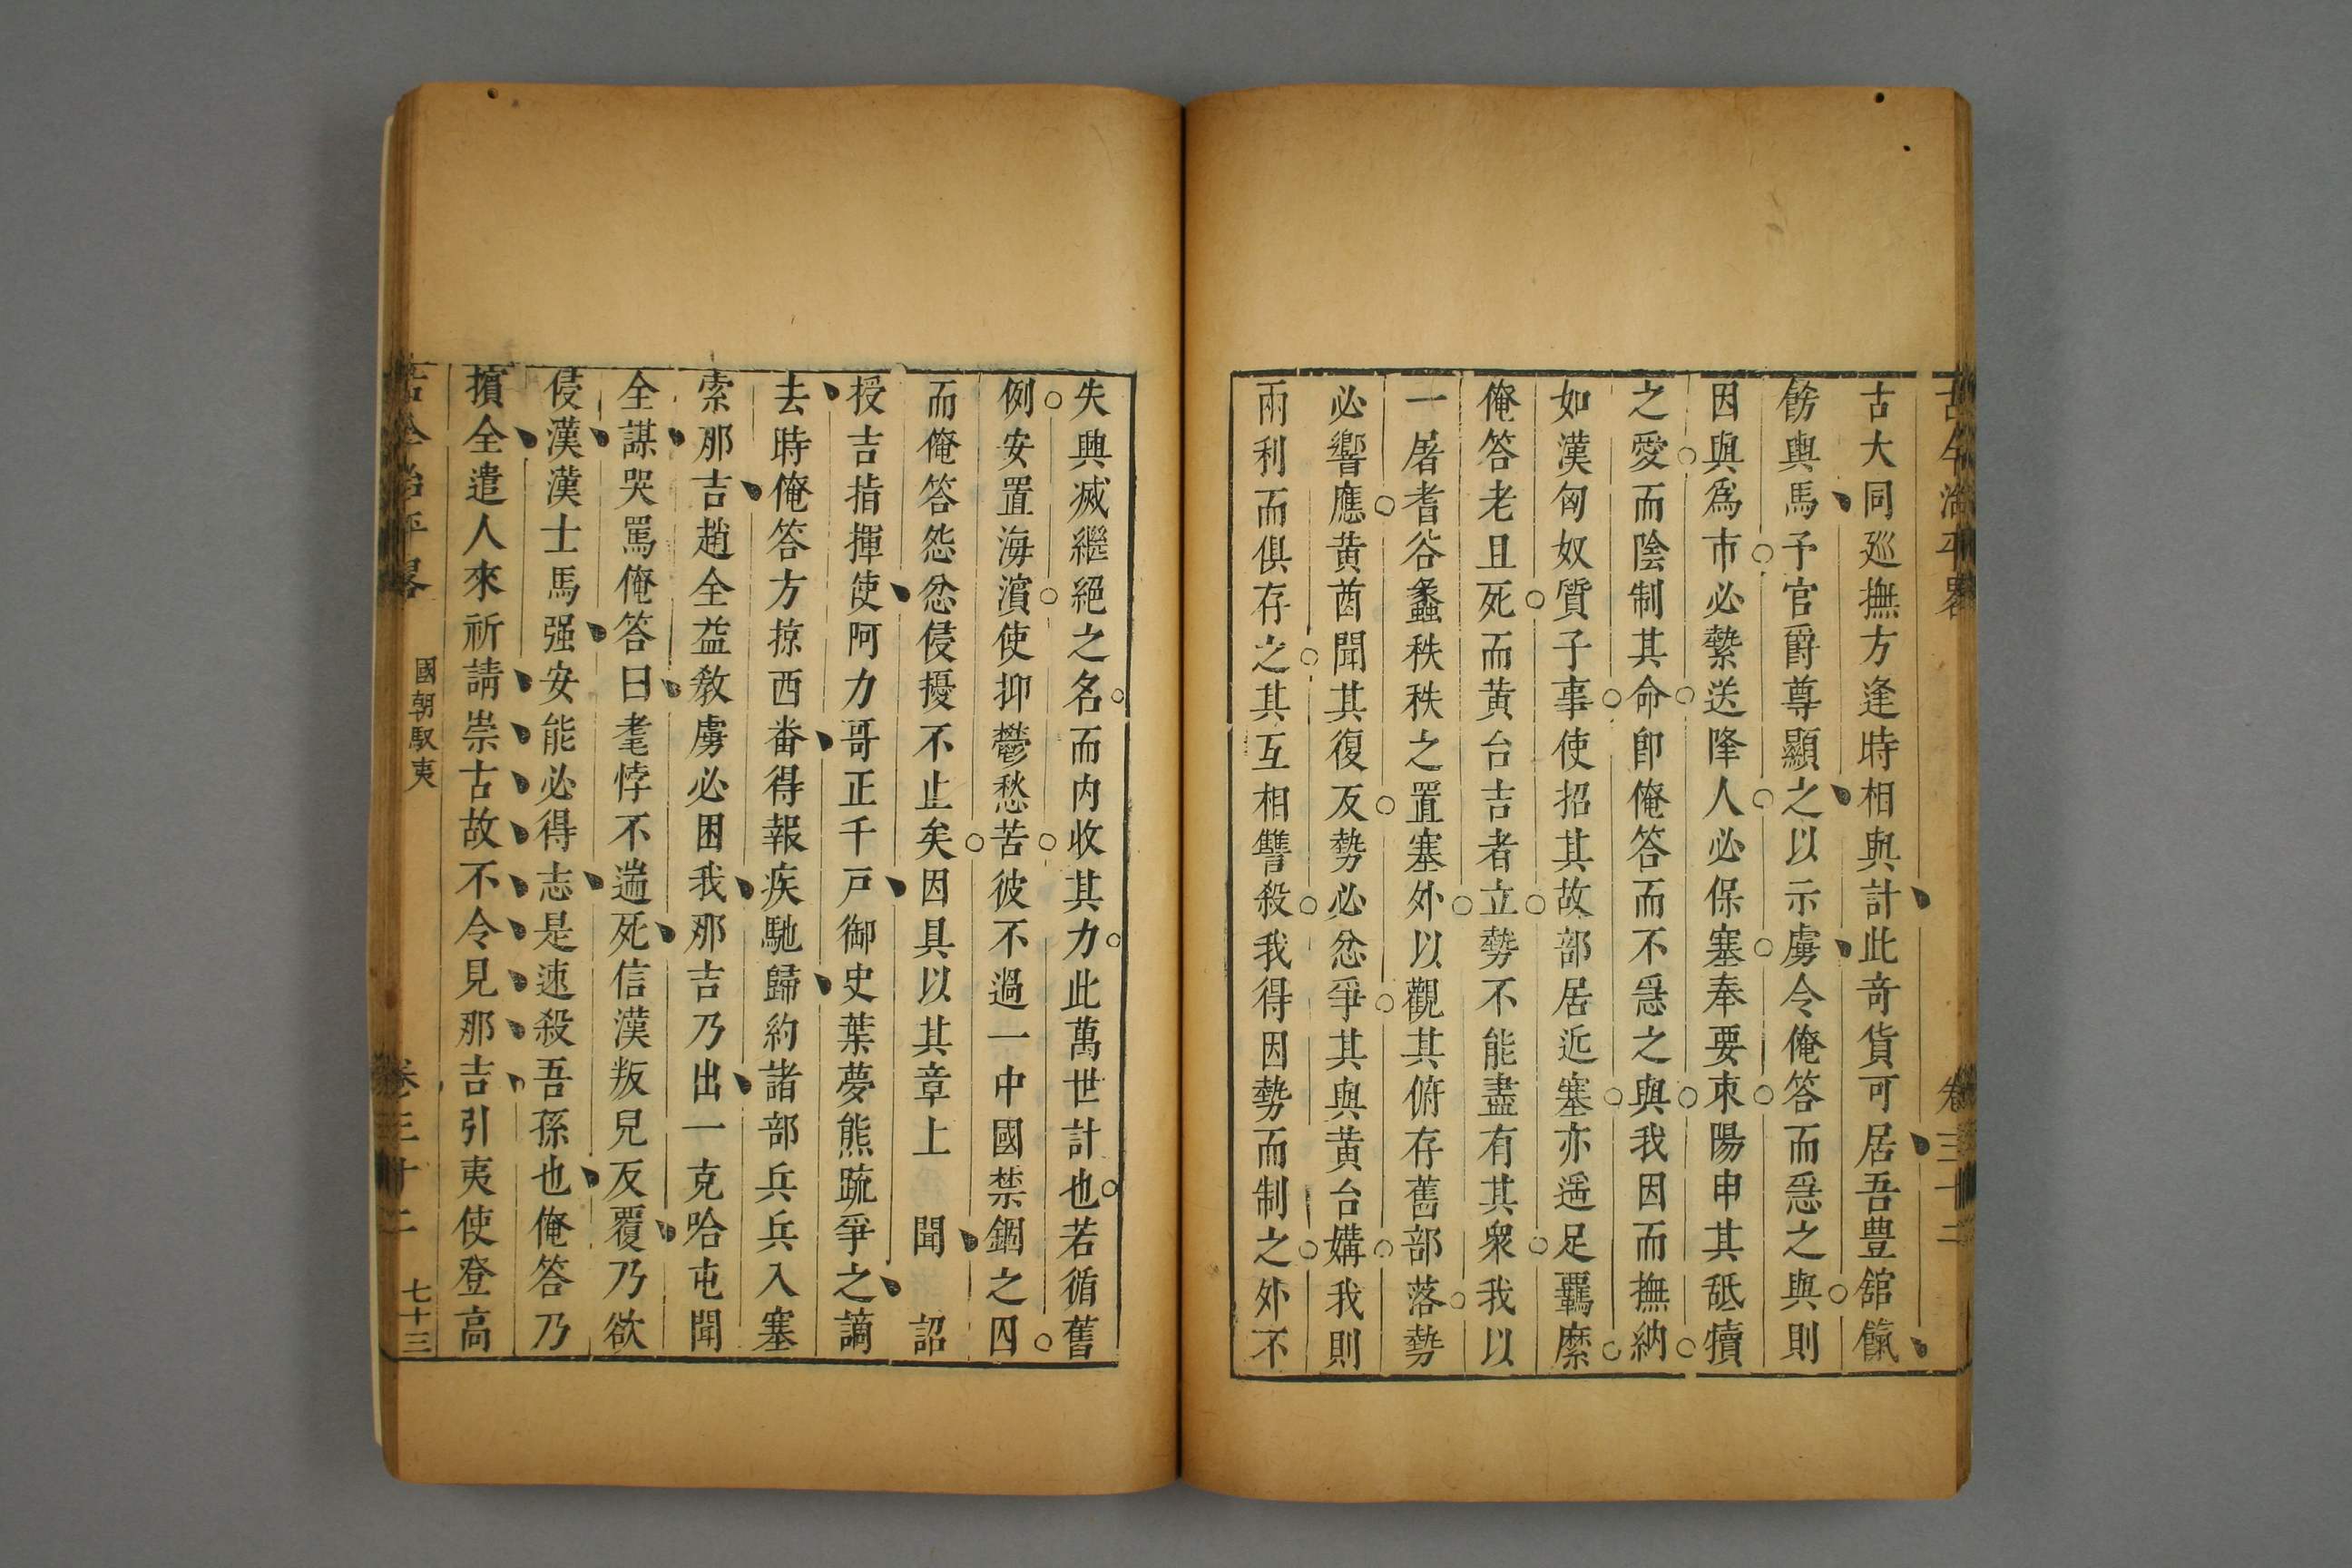 古今治平畧
卷三十二
古大同廵撫方逢時相與計此竒貨可居吾豊舘餼
餙輿馬予官爵尊顯之以示虜令俺答而㤅之與則
因與爲市必縶送降人必保塞奉要束陽申其䑛犢
之愛而隂制其命卽俺答而不㤅之與我因而撫納
如漢匈奴質子事使招其故部居近塞亦遥足羈縻
俺答老且死而黄台吉者立勢不能盡有其衆我以
一屠耆谷蠡秩秩之置塞外以觀其俯存舊部落勢
必響應黄酋聞其復反勢必忿爭其與黄台媾我則
兩利而俱存之其互相讐殺我得因勢而制之外不
失興滅繼絕之名而内收其力此萬世計也若循舊
例安置海濱使抑鬱愁苦彼不過一中國禁錮之囚
而俺答怨忿侵擾不止矣因具以其章上 聞 詔
授吉指揮使阿力哥正千戸御史葉夢熊䟽爭之謫
去時俺答方掠西畨得報疾馳歸約諸部兵兵入塞
索那吉趙全益敎虜必困我那吉乃出一克哈屯聞
全謀哭罵俺答曰耄悖不遄死信漢叛兒反覆乃欲
侵漢漢士馬强安能必得志是速殺吾孫也俺答乃
擯全遣人來祈請崇古故不令見那吉引夷使登高
古今治平畧
國朝馭夷
卷三十二
七十三